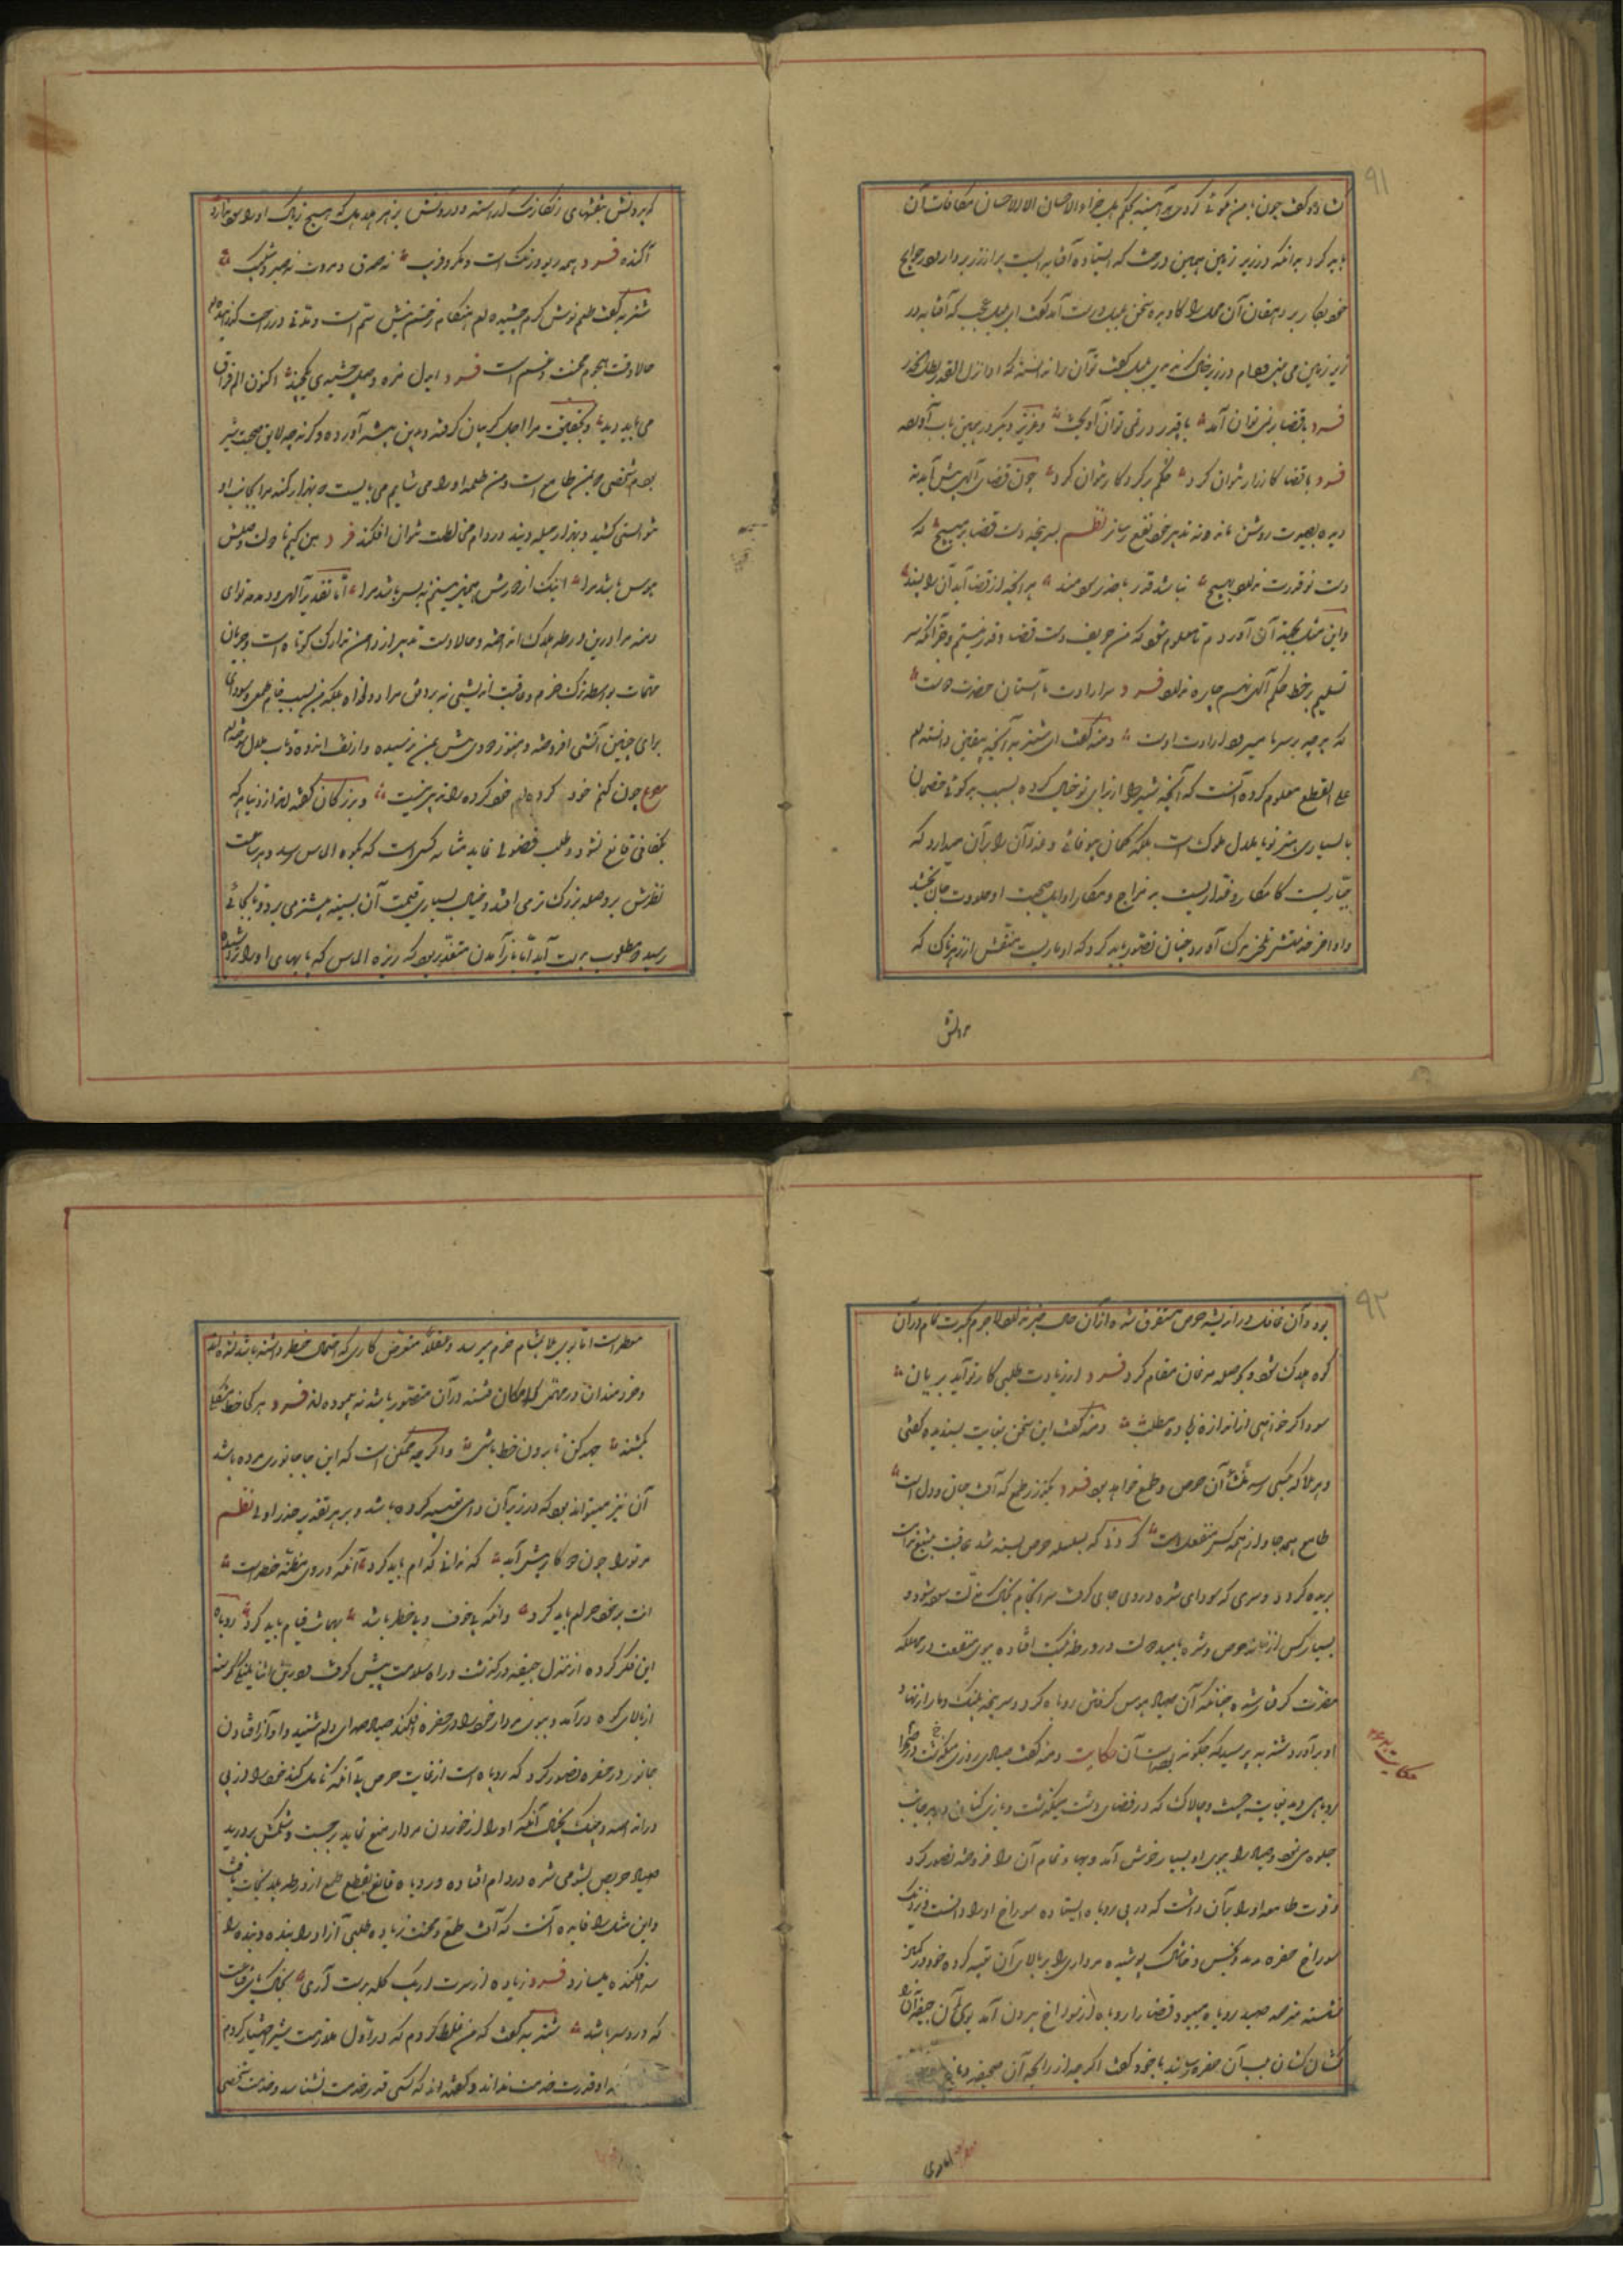 ۹۱
نشان داد گفت چون با من نکوئی کردی هر آینه بحکم هل جزاء الاحسان الا الاحسان مکافات آن
باید کرد بدانکه در زیر زمین همین درخت که ایستاده آفتابه ایست پر از زر بردار و در حوایج
خود بکار بر دهقان آن محل را کاوید سخن بلبل درست آمد گفت ای بلبل عجب که آفتابه زر در
زیر زمین می بینی و دام در زیر خاک ندیدی بلبل گفت تو آن را ندانسته که اذا نزل القدر بطل الحذر
فرد با قضا بر نمی توان آمد با قدر در نمی توان آویخت و عزیزی دیگر در همین باب آورده
فرد با قضا کارزار نتوان کرد حکم بر کردگار نتوان کرد چون قضای آلهی پیش آید نه
دیده بصیرت روشن ماند و نه تدبیر خود نفع رساند نظم سرپنجه دست قضا بر مپیچ که
دست تو قدرت ندارد بهیچ نباشد قدر با حذر سودمند هر آنچه از قضا آید آن را پسند
و این مثل بجهت آن آوردم تا معلوم شود که من حریف دست قضا و قدر نیستم و جز آنکه سر
تسلیم بر خط حکم آلهی نهم چاره ندارم فرد سر ارادت ما آستان حضرت دوست
که هر چه بر سر ما میرود ارادت اوست دمنه گفت ای شتربه آنچه بیقین دانسته ام
علی القطع معلوم کرده آنست که آنچه شیر از برای تو خیال کرده بسبب بدگوئی خصمان
یا بسیاری هنر تو یا ملال ملوک است بلکه کمال بیوفائی و غدر آن را بر آن میدارد که
جباریست کامکار و غداریست بد مزاج و مکار اوایل صحبت او حلاوت جان بخشد
و اواخر خدمتش تلخی مرگ آورد چنان تصور باید کرد که او ماریست منقش از زهرناک که
بیرونش
که بیرونش بنقشهای رنگارنگ آراسته و درونش بزهر هلاهل که هیچ تریاک او را سود ندارد
آگنده فرد همه ریو و رنگ است و مکر و فریب نه صدق و مروت نه صبر و شکیب
شتربه گفت طعم نوش کرم چشیده ام هنگام زخم نیش ستم است و مدتی در راحت گذرانیده
حالا وقت هجوم محنت و غم است فرد ای دل مزه وصل چشیدی یکچند اکنون الم فراق
می باید دید و بحقیقت مرا اجل گریبان گرفته درین بیشه آورده و گرنه چه لایق صحبت شیر
بودم شخصی که بمن طامع است و من طعمه او را می شایم می بایست که بهزار کمند مرا بجانب او
نتوانستی کشید و بهزار حیله و بند در دام مخالطت نتوان افکند فرد من کیم تا دولت وصلش
هوس باشد مرا اینک از دورش همی بینم نه بس باشد مرا اما تقدیر آلهی و دمدمه تو ای
دمنه مرا درین ورطه هلاک انداخته و حالا دست تدبیر از دامن تدارک کوتاه است و جریان
مهمات بواسطه ترک حزم و عاقبت اندیشی نه بر وفق مراد و دلخواه بلکه من بسبب خام طمعی و سودای
برای چنین آتشی افروخته و هنوز دودی بیش بمن نرسیده و از تف اندوه و تاب ملال سوخته ام
مصرع چون کنم خود کرده ام خود کرده را تدبیر نیست و بزرگان گفته اند از دنیا هر که
بکفافی قانع نشود و طلب فضولی نماید مشابه کسی است که بکوه الماس رسد و هر ساعت
نظرش بر قطعه بزرگ تر می افتد و بخیال بسیاری قیمت آن بسینه پیشتر می رود تا بجائی
رسید و مطلوب بدست آید اما باز آمدن متعذر بود که ریزه الماس که پایهای او را تراشیده
۹۲
بود و آن غافل در اندیشه حرص مستغرق شده از آن حال خبر ندارد لاجرم بحسرت تمام در آن
کوه هلاک شود و بحوصله مرغان مقام کرد فرد از زیادت طلبی کار تو آید بزیان
سود اگر خواهی از اندازه زیاده مطلب دمنه گفت این سخن بغایت پسندیده گفتی
و هر بلا که بکسی رسد منشأ آن حرص و طمع خواهد بود فرد بگذر ز طمع که آفت جان و دل است
طامع همه جا و از همه کس منفعل است گردنی که بسلسله حرص بسته شد عاقبت بتیغ ندامت
بریده گردد و سری که سودای شره در وی جای گرفت سرانجام بخاک مذلت سوده شود و
بسیار کس از غایت حرص و شره بامید دولت در ورطه نکبت افتاده ببوی منفعت در مهلکه
مضرت گرفتار شده چنانکه آن صیاد هوس گرفتن روباه کرد و سرپنجه پلنگ دمار از نهاد
او برآورد شتربه پرسید که چگونه بوده است آن حکایت دمنه گفت صیادی روزی میگذشت در صحرا
روباهی دید بغایت چست و چالاک که در فضای دشت میگشت و بازی کنان بهر جانب
جلوه می نمود صیاد را موی او بسیار خوش آمد و بهاء تمام آن را فروخته تصور کرد
قوت طامعه او را بر آن داشت که در پی روباه ایستاده سوراخ او را دانست و نزدیک
سوراخ حفره برید و بخس و خاشاک پوشیده مرداری را بر بالای آن تعبیه کرده خود در کمین
نشسته مترصد صید روباه میبود قضا را روباه از سوراخ بیرون آمد بوی آن جیفه او را
کشان کشان بلب آن حفره رسانید با خود گفت اگر چه از رایحه آن جیفه دماغ
حکایت
معطر است اما بوی بلا بمشام حزم میرسد و عقلا متعرض کاری که احتمال خطر داشته باشد نشده اند
و خردمندان در مهمی که امکان فتنه در آن متصور باشد نه پیموده اند فرد هر کجا خطی مشکل
بکشند جهد کن تا برون خط باشی و اگر چه ممکن است که این جا جانوری مرده باشد
آن نیز میتواند بود که در زیر آن دامی تعبیه کرده باشد و بر هر تقدیر حذر اولی نظم
مر ترا چون دو کار پیش آید که ندانی کدام باید کرد آنکه در وی مظنه خطر است
آنت بر خود حرام باید کرد و آنکه بی خوف و بی خطر باشد بهمانت قیام باید کرد روباه
این فکر کرده از منزل جیفه در گذشت و راه سلامت پیش گرفت در این اثنا پلنگی گرسنه
از بالای کوه درآمد و ببوی مردار خود را در حفره افکند صیاد صدای دام شنید و آواز افتادن
جانور در حفره تصور کرد که روباه است از غایت حرص بی آنکه تامل کند خود را از پی
در انداخت و پلنگ بخیال آنکه او را از خوردن مردار منع نماید برجست و شکمش بردرید
صیاد حریص بشومی شره در دام افتاده و روباه قانع بقطع طمع از ورطه بلا نجات یافت
و این مثل را فایده آنست که آفت طمع و محنت زیاده طلبی آزاد را بنده و بنده را
سرافکنده میسازد فرد زیاده از سرت ار یک کله بدست آری بخاک پای قناعت
که درد سر باشد شتربه گفت که من غلط کردم که در اول ملازمت شیر اختیار کردم
او قدر خدمت نداند و گفته اند که کسی قدر خدمت نشناسد و خدمت شخصی